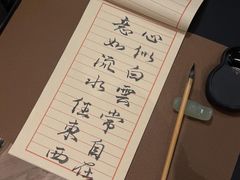 心似白雲常自在
意如流水任東西